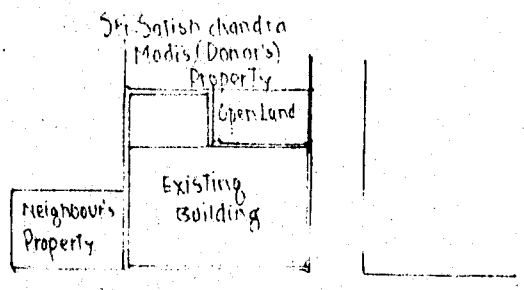 Sri. Satish chandra
Modis (Donor's)
Property
Open Land
Existing
Building
Neighbour's
Property